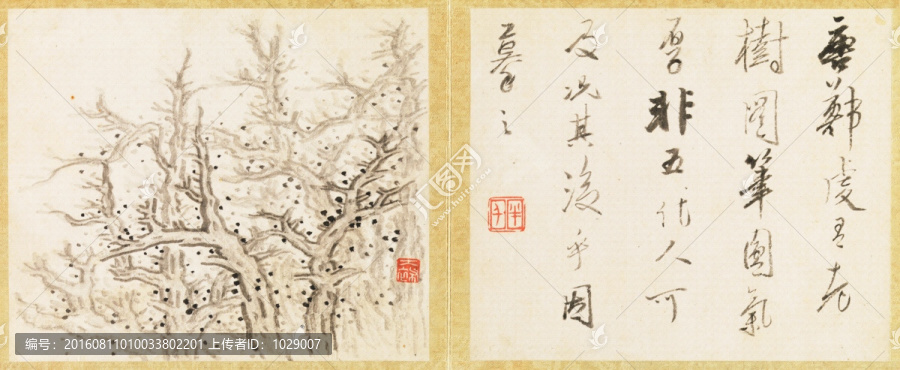 唐鄭虔有老
樹圖筆圓氣
厚非五代人可
及況其後乎因
摹之
半千
编号：20160811010033802201 上传者ID：1029007